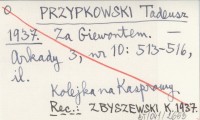 O PRZYPKOWSKI Tadeusz
1937. Za Giewontem. —
Arkady 3, nr 10: 513-516,
il.
Kolejka na Kasprowy.
Rec.: ZBYSZEWSKI K. 1937.